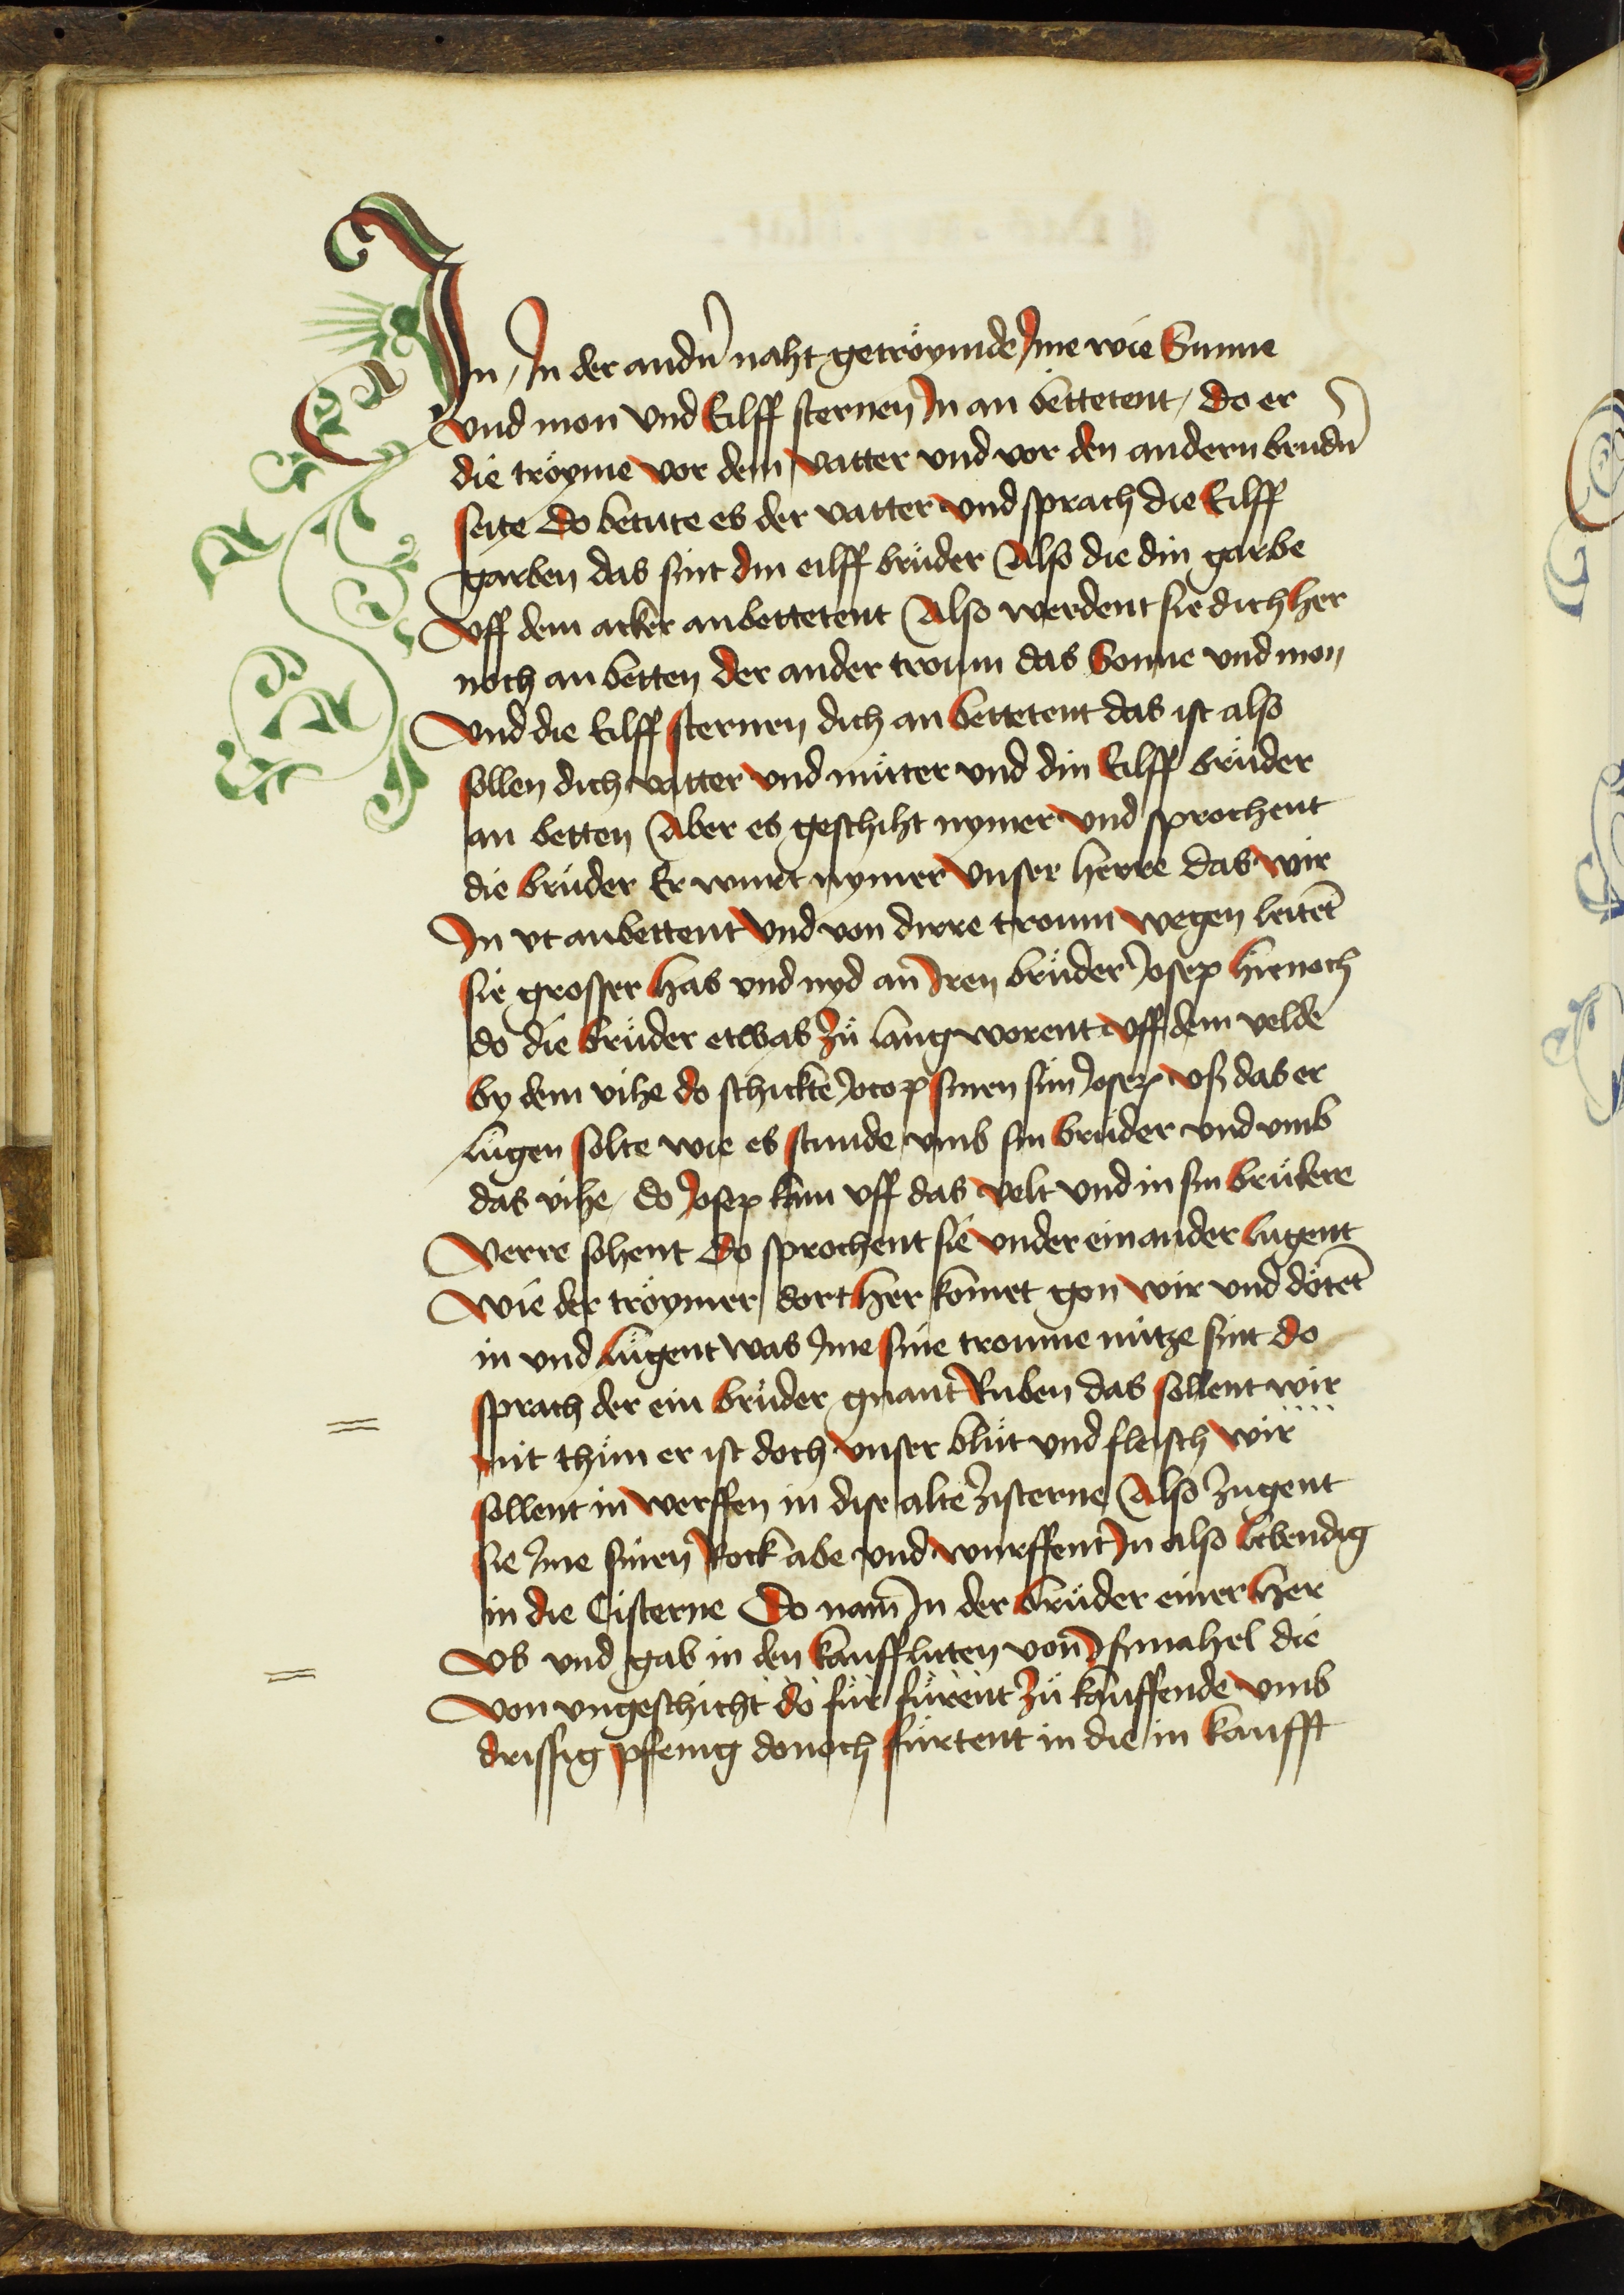 In / In der andn̄ naht getröymde Ime wie Sunne
vnd mon vnd Eilff sternen In an bettetent / do er
die tröyme vor dem vatter vnd vor den andern brudn̄
seite do betute es der vatter vnd sprach die Eilff
garben das sint din eilff brüder Also die din garbe
vff dem acker anbettetent Also werdent sie dich her
noch an betten der ander troum das Sonne vnd mon
vnd die Eilff sternen dich an bettetent das ist also
sollen dich vatter vnd müter vnd din Eilff brüder
an betten Aber es geschiht nymer vnd sprochent
die brüder Er wurt nymer vnser herre das wir
In vt anbettent vnd von dirre troum wegen leitet̄
sie grosser has vnd nyd an Iren brüder Josep hienoch
do die brüder etwas zü lang worent vff dem velde
by dem vihe do schickte Jocop sinen sun Josep vß das er
lügen solte wie es stunde vmb sin brüder vnd vmb
das vihe / do Josep kam vff das velt vnd in sin brüdere
verre sohent do sprochent sie vnder einander lugent
wie der tröymer dorther komet gon wir vnd dötet̄
in vnd lügent was Ime sine troume nütze sint do
sprach der ein brüder gnant Ruben das sollent wir
nit thün er ist doch vnser blüt vnd fleisch wir
sollent in werffen in dise alte zisterne Also zugent
sie Ime sinen Rock abe vnd wurffent In also lebendig
in die Cisterne Do nam̄ In der brüder einer her
vs vnd gab in den kauffluten von Ismahel die
von vngeschicht do für fürent zü kauffende vmb
drissig pfenig donoch fürtent in die in kaufft